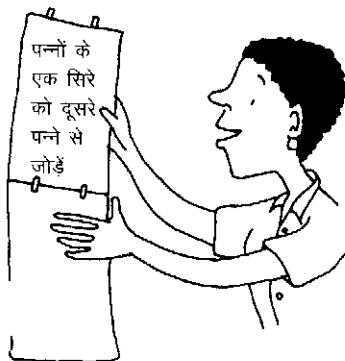 पन्नों के
एक सिरे
को दूसरे
पन्ने से
जोड़ें